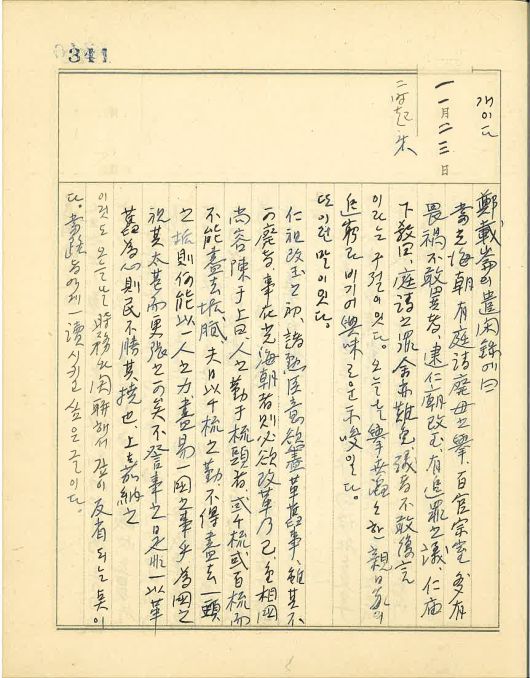 341
개이다
一一月二三日
二時起床
鄭載崙의 遣閑錄에曰
當光海朝 有庭請廢母之擧, 百官宗室 多有
畏禍不敢異者, 逮仁朝改玉, 有追罪之議, 仁廟
下敎曰, 庭請之罪 舍亦難免 議者不敢復言
이라는 구절이 있다. 오늘날 擧世 한 親日家의
追窮과 비기어 興味로운 示唆일다.
또 이런 말이 있다.
仁祖改玉之初, 諸勳臣意欲盡革舊事, 雖其不
可廢者 事在光海朝者則必欲改革乃已, 金相國
尙容陳于上曰, 人之勤于梳頭者 或千梳, 或百梳而
不能盡去垢膩 夫日以千梳之勤 不得盡去一頭
之垢則何能以一人之力 盡易一國之事乎 爲國之
祝其太甚而更張之可矣 不 事之是非 一以革
舊爲心則民不勝其撓也, 上嘉納之
이것도 오늘날 時務와 関聯해서 깊이 反省되는 奌이
다. 當路者에게 一讀시키고 싶은 글이다.